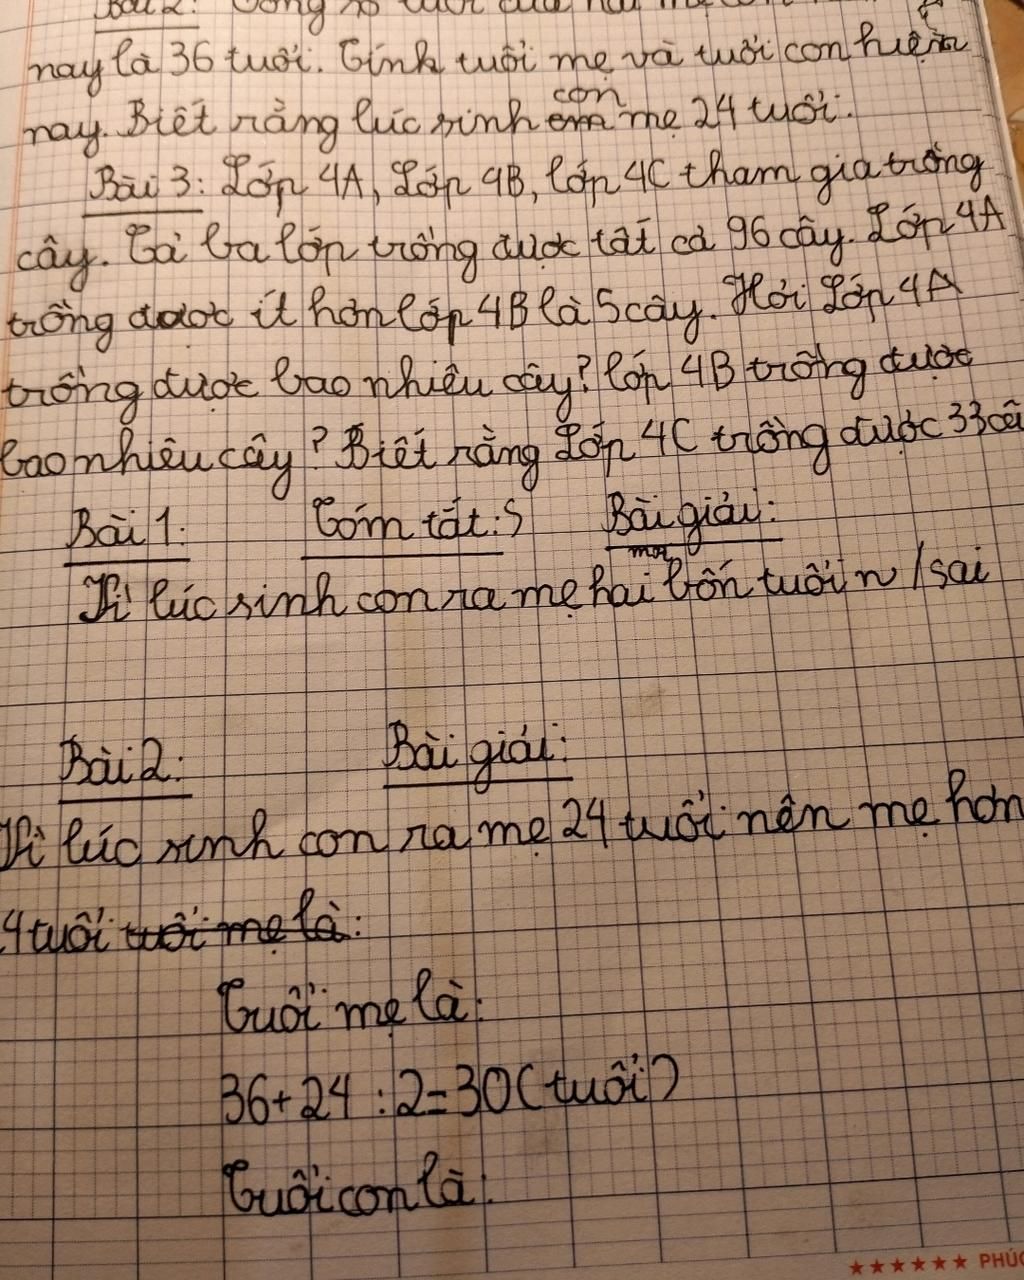 Bài 2: Tổng số tuổi của hai mẹ con
nay là 36 tuổi. Tính tuổi mẹ và tuổi con hiện
nay. Biết rằng lúc sinh con mẹ 24 tuổi.
Bài 3: Lớp 4A, Lớp 4B, lớp 4C tham gia trồng
cây. Cả ba lớp trồng được tất cả 96 cây. Lớp 4A
trồng được ít hơn lớp 4B là 5 cây. Hỏi Lớp 4A
trồng được bao nhiêu cây? lớp 4B trồng được
bao nhiêu cây? Biết rằng Lớp 4C trồng được 33 câ
Bài 1: Tóm tắt: S Bài giải:
Vì lúc sinh con ra mẹ hai mơi bốn tuổi n / sai
Bài 2: Bài giải:
Vì lúc sinh con ra mẹ 24 tuổi nên mẹ hơn
4 tuổi tuổi mẹ là:
Tuổi mẹ là:
36 + 24 : 2 = 30 (tuổi)
Tuổi con là:
★★★★★★ PHÚC